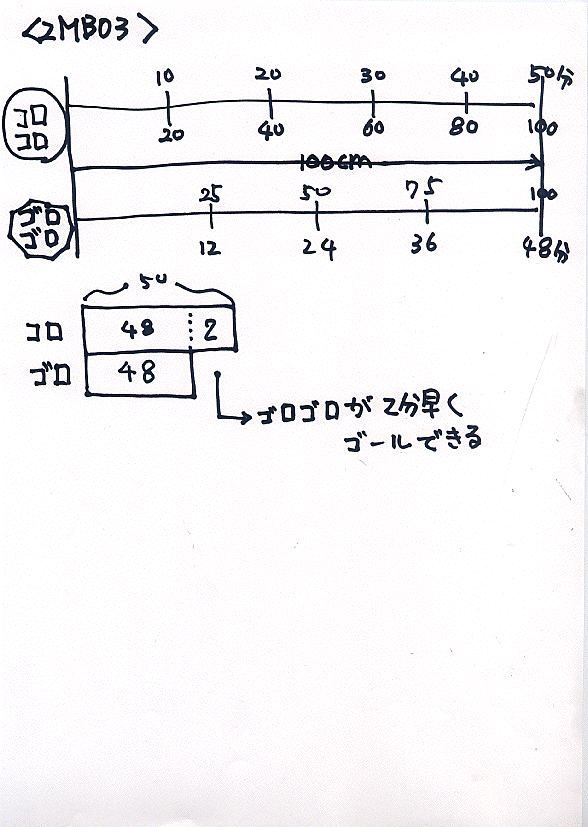 <2MB03>
10 20 30 40 50分
コロ
コロ
20 40 60 80 100
100cm
25 50 75 100
ゴロ
ゴロ
12 24 36 48分
50
コロ 48 2
ゴロ 48
ゴロゴロが2分早く
ゴールできる